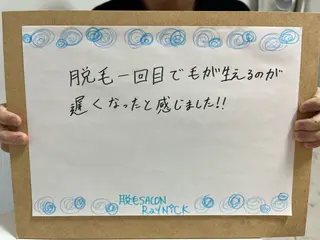 脱毛一回目で毛が生えるのが
遅くなったと感じました!!
脱毛SALON
RayNiCK